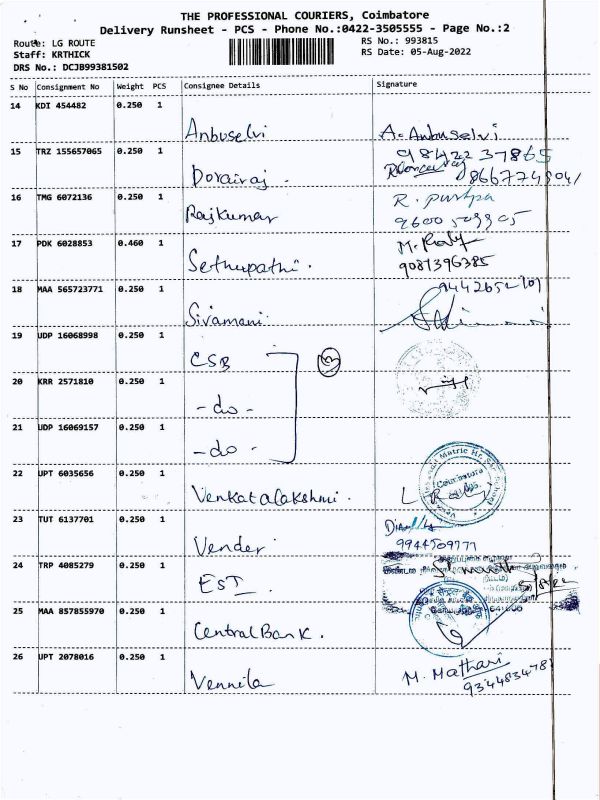 THE PROFESSIONAL COURIERS, Coimbatore
Delivery Runsheet - PCS - Phone No.:0422-3505555 - Page No.:2
Route: LG ROUTE
RS No.: 993815
Staff: KRTHICK
RS Date: 05-Aug-2022
DRS No.: DCJB99381502
S No Consignment No Weight PCS Consignee Details Signature
14 KDI 454482 0.250 1
Anbuselvi A. Anbuselvi
9842237865
15 TRZ 155657065 0.250 1
Dorairaj.
16 TMG 6072136 0.250 1
Rajkumar R. pushpa
17 PDK 6028853 0.460 1
Sethupathi. 9087396385
18 MAA 565723771 0.250 1
Sivamani
19 UDP 16068998 0.250 1
CSB 3
20 KRR 2571810 0.250 1
- do -
21 UDP 16069157 0.250 1
- do -
22 UPT 6035656 0.250 1
Venkatalakshmi. Coimbatore
23 TUT 6137701 0.250 1
Vender 9944509771
24 TRP 4085279 0.250 1
EST
25 MAA 857855970 0.250 1
Central Bank.
26 UPT 2078016 0.250 1
Vennila M. Mathari
9344834781